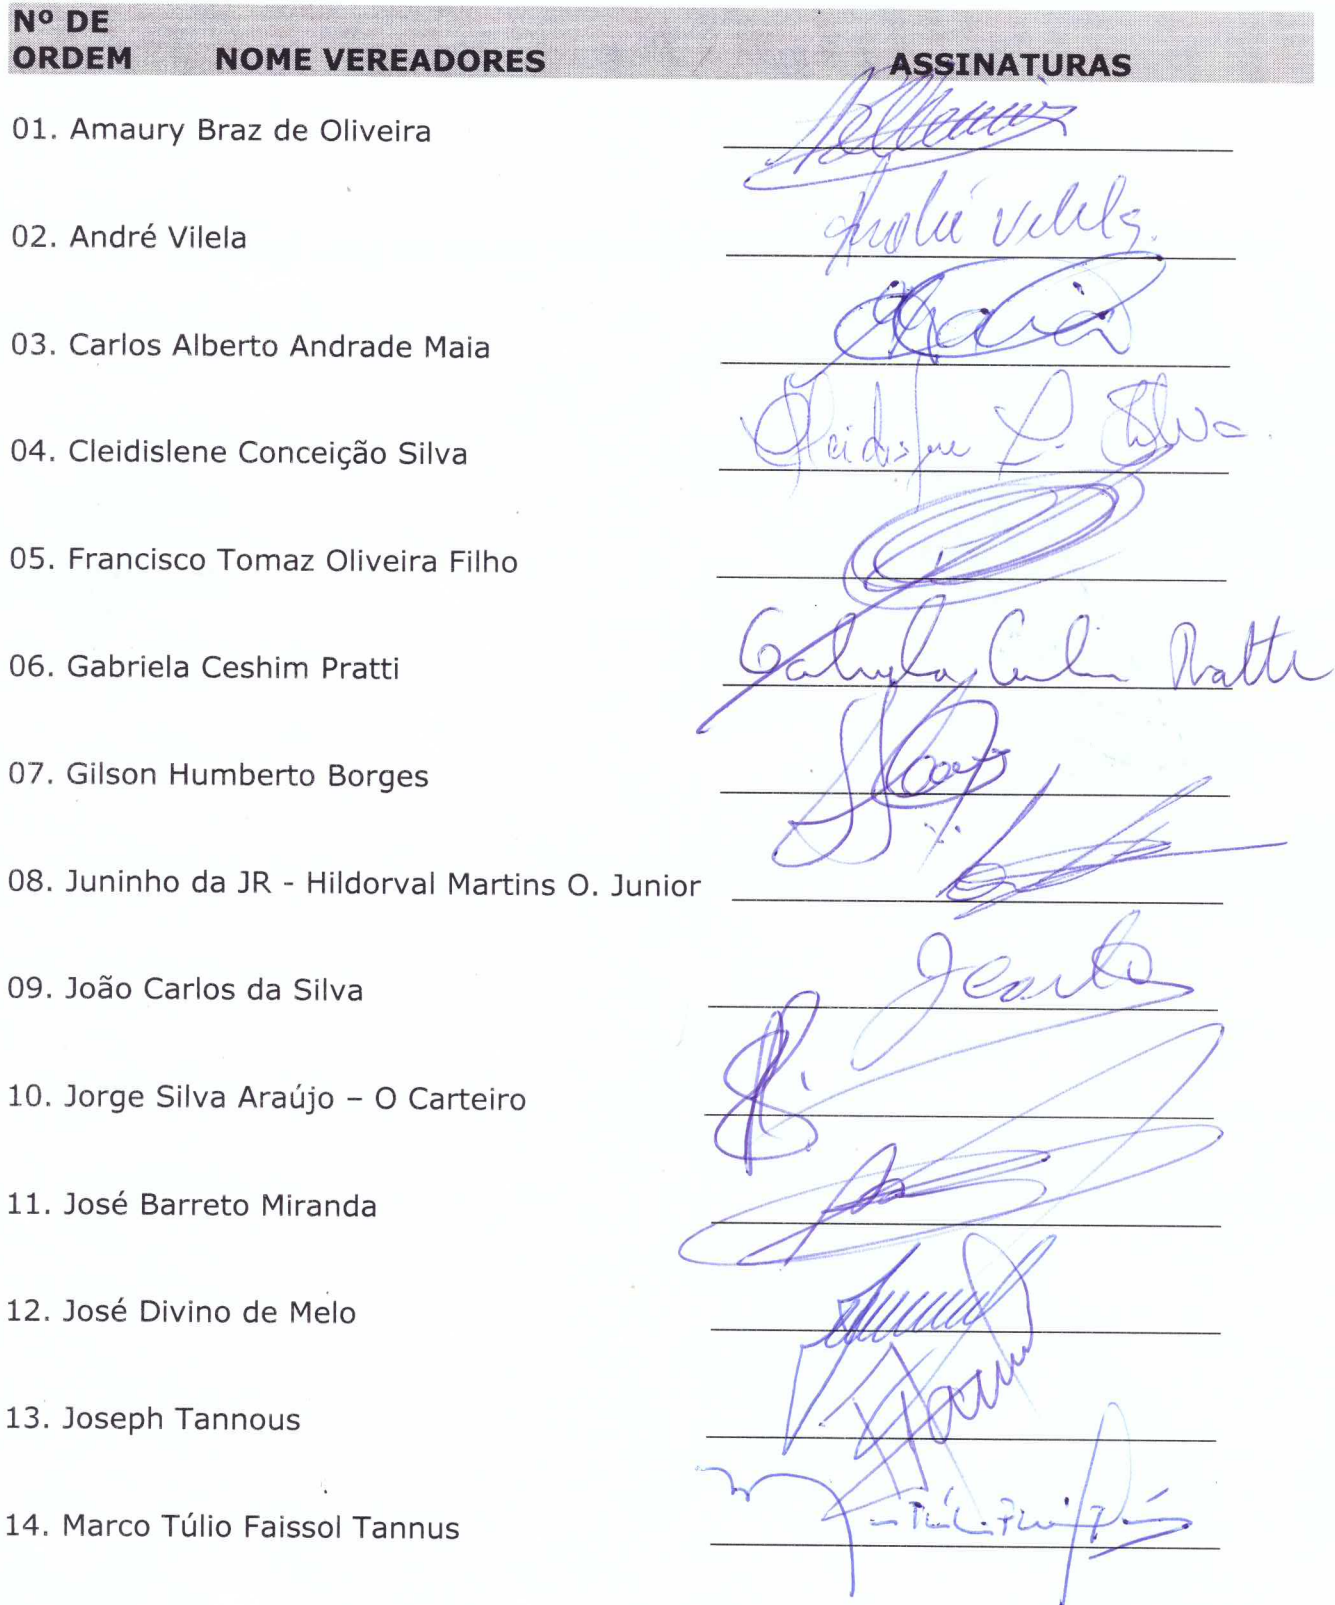 Nº DE
ORDEM NOME VEREADORES ASSINATURAS
01. Amaury Braz de Oliveira
02. André Vilela André Vilela.
03. Carlos Alberto Andrade Maia
04. Cleidislene Conceição Silva Cleidislene C. Silva.
05. Francisco Tomaz Oliveira Filho
06. Gabriela Ceshim Pratti Gabriela Ceshim Pratti
07. Gilson Humberto Borges
08. Juninho da JR - Hildorval Martins O. Junior
09. João Carlos da Silva JCarlos
10. Jorge Silva Araújo – O Carteiro
11. José Barreto Miranda
12. José Divino de Melo
13. Joseph Tannous
14. Marco Túlio Faissol Tannus